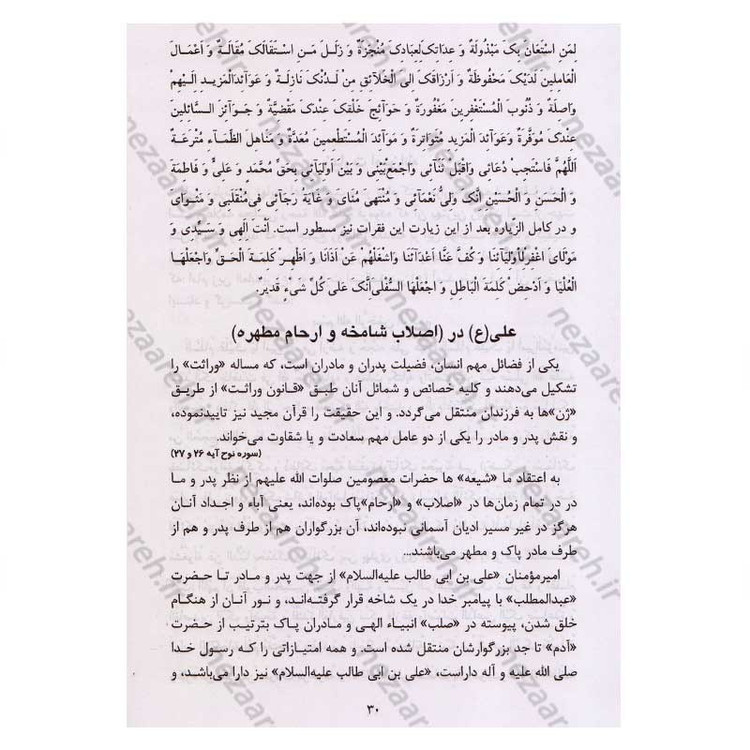 لِمَنِ اسْتَعَانَ بِکَ مَبْذُولَةٌ وَ عِدَاتِکَ لِعِبَادِکَ مُنْجَزَةٌ وَ زَلَلَ مَنِ اسْتَقَالَکَ مُقَالَةٌ وَ أَعْمَالَ
الْعَامِلِینَ لَدَیْکَ مَحْفُوظَةٌ وَ أَرْزَاقَکَ إِلَی الْخَلَائِقِ مِنْ لَدُنْکَ نَازِلَةٌ وَ عَوَائِدَ الْمَزِیدِ إِلَیْهِمْ
وَاصِلَةٌ وَ ذُنُوبَ الْمُسْتَغْفِرِینَ مَغْفُورَةٌ وَ حَوَائِجَ خَلْقِکَ عِنْدَکَ مَقْضِیَّةٌ وَ جَوَائِزَ السَّائِلِینَ
عِنْدَکَ مُوَفَّرَةٌ وَعَوَائِدَ الْمَزِیدِ مُتَوَاتِرَةٌ وَ مَوَائِدَ الْمُسْتَطْعِمِینَ مُعَدَّةٌ وَ مَنَاهِلَ الظِّمَاءِ مُتْرَعَةٌ
اَللَّهُمَّ فَاسْتَجِبْ دُعَائِی وَاقْبَلْ ثَنَائِی وَاجْمَعْ بَیْنِی وَ بَیْنَ أَوْلِیَائِی بِحَقِّ مُحَمَّدٍ وَ عَلِیٍّ وَ فَاطِمَةَ
وَ الْحَسَنِ وَ الْحُسَیْنِ إِنَّکَ وَلِیُّ نَعْمَائِی وَ مُنْتَهَی مُنَایَ وَ غَایَةُ رَجَائِی فِی مُنْقَلَبِی وَ مَثْوَایَ
و در کامل الزّیاره بعد از این زیارت این فقرات نیز مسطور است. أَنْتَ إِلَهِی وَ سَیِّدِی وَ
مَوْلَایَ اغْفِرْ لِأَوْلِیَائِنَا وَ کُفَّ عَنَّا أَعْدَائَنَا وَاشْغَلْهُمْ عَنْ أَذَانَا وَ أَظْهِرْ کَلِمَةَ الْحَقِّ وَاجْعَلْهَا
الْعُلْیَا وَ أَدْحِضْ کَلِمَةَ الْبَاطِلِ وَ اجْعَلْهَا السُّفْلَی إِنَّکَ عَلَی کُلِّ شَیْءٍ قَدِیرٌ.
علی(ع) در (اصلاب شامخه و ارحام مطهره)
یکی از فضائل مهم انسان، فضیلت پدران و مادران است، که مساله «وراثت» را
تشکیل می‌دهند و کلیه خصائص و شمائل آنان طبق «قانون وراثت» از طریق
«ژن»ها به فرزندان منتقل می‌گردد. و این حقیقت را قرآن مجید نیز تاییدنموده،
و نقش پدر و مادر را یکی از دو عامل مهم سعادت و یا شقاوت می‌خواند.
(سوره نوح آیه ۲۶ و ۲۷)
به اعتقاد ما «شیعه» ها حضرات معصومین صلوات الله علیهم از نظر پدر و ما
در در تمام زمان‌ها در «اصلاب» و «ارحام»پاک بوده‌اند، یعنی آباء و اجداد آنان
هرگز در غیر مسیر ادیان آسمانی نبوده‌اند، آن بزرگواران هم از طرف پدر و هم از
طرف مادر پاک و مطهر می‌باشند...
امیرمؤمنان «علی بن ابی طالب علیه‌السلام» از جهت پدر و مادر تا حضرت
«عبدالمطلب» با پیامبر خدا در یک شاخه قرار گرفته‌اند، و نور آنان از هنگام
خلق شدن، پیوسته در «صلب» انبیاء الهی و مادران پاک بترتیب از حضرت
«آدم» تا جد بزرگوارشان منتقل شده است. و همه امتیازاتی را که رسول خدا
صلی الله علیه و آله داراست، «علی بن ابی طالب علیه‌السلام» نیز دارا می‌باشد، و
۳۰
nezaareh.ir